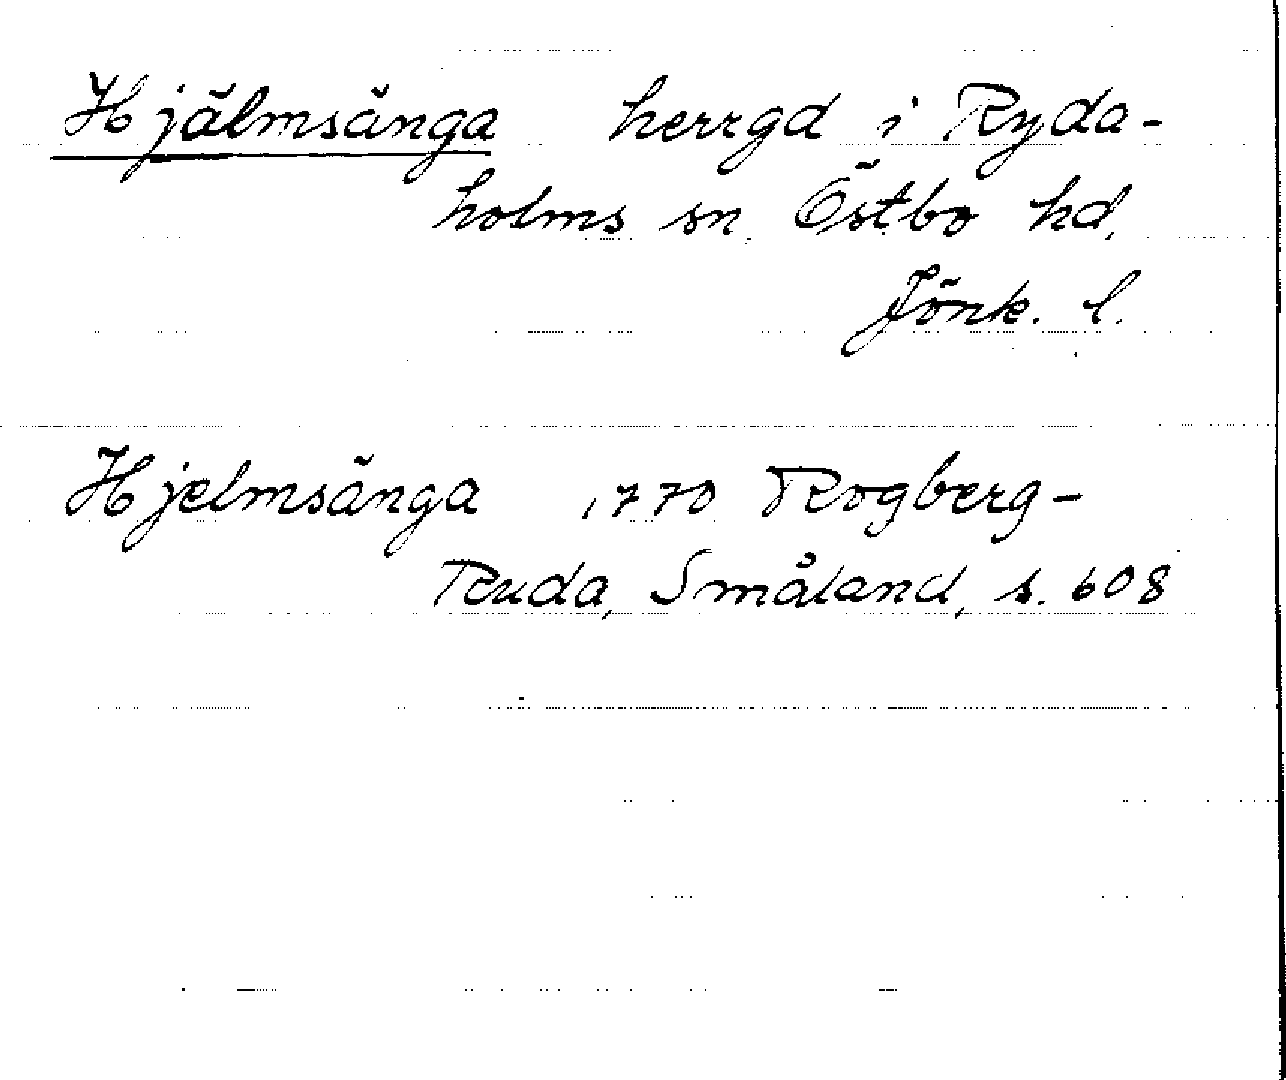 Hjälmsänga herrgd i Ryda-
holms sn. Östbo hd,
Jönk. l.
Hjelmsänga 1770 Rogberg-
Ruda, Småland, s. 608